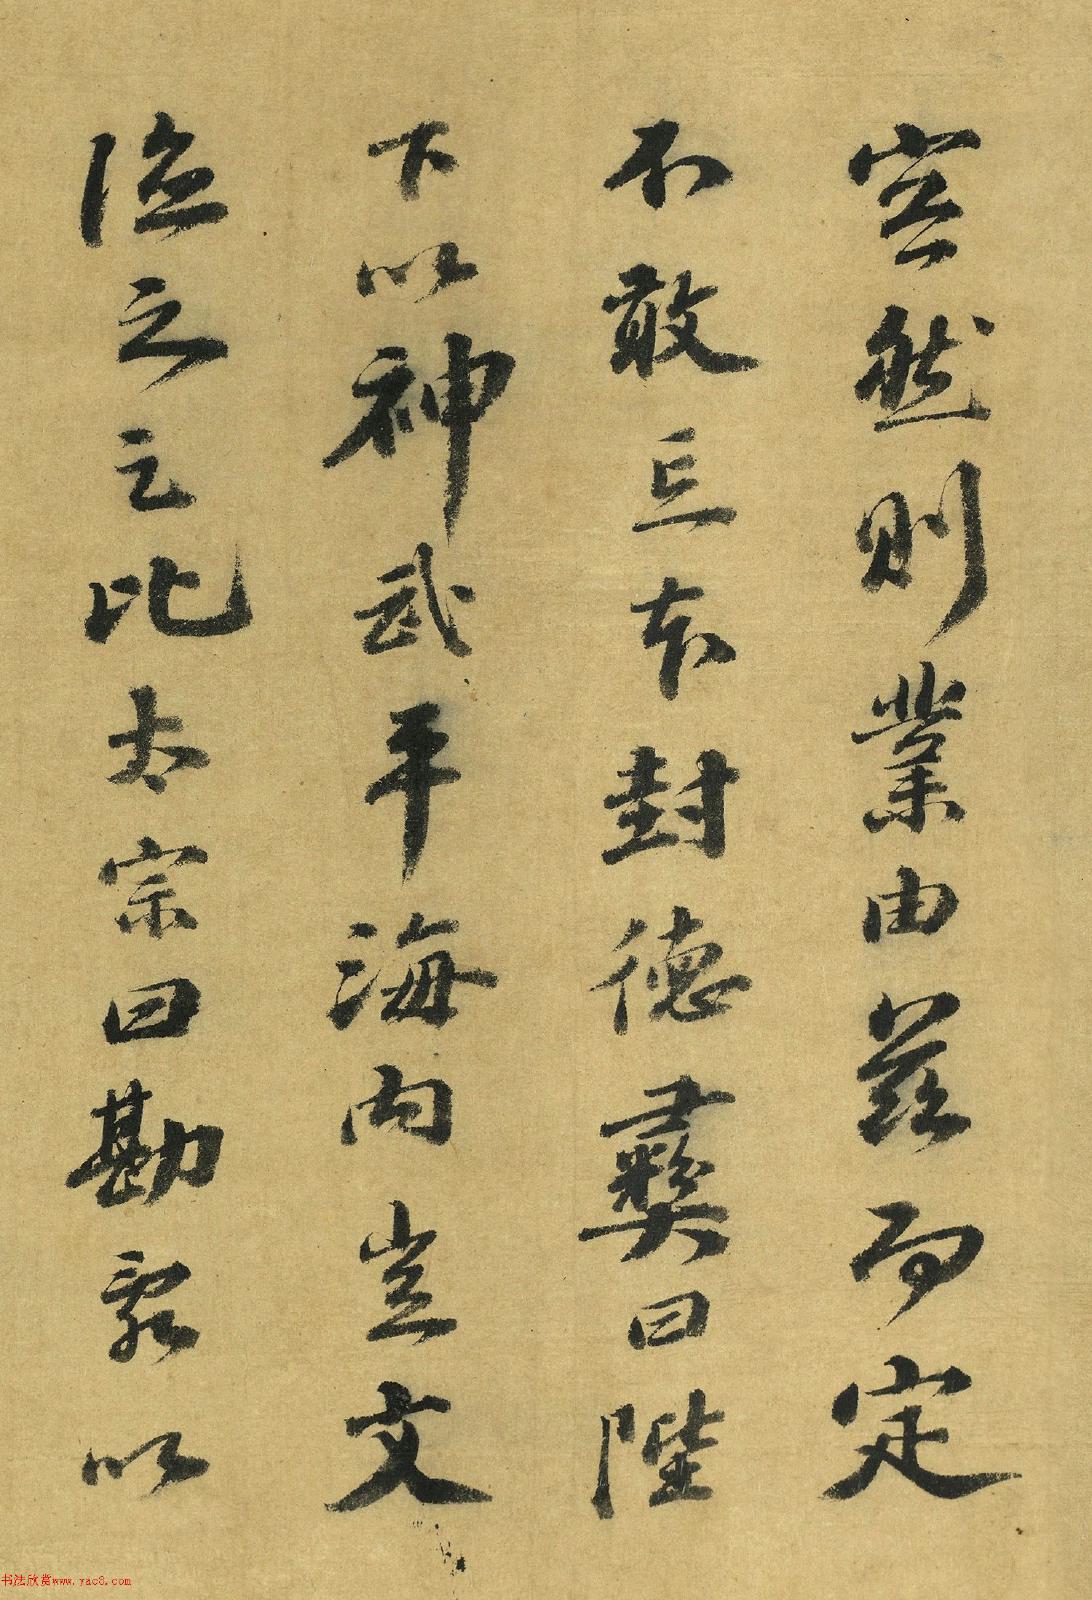 容然則業由茲而定
不敢忘本封德彝曰陛
下以神武平海内豈文
德之足比太宗曰勘亂以
书法欣赏www.yac8.com